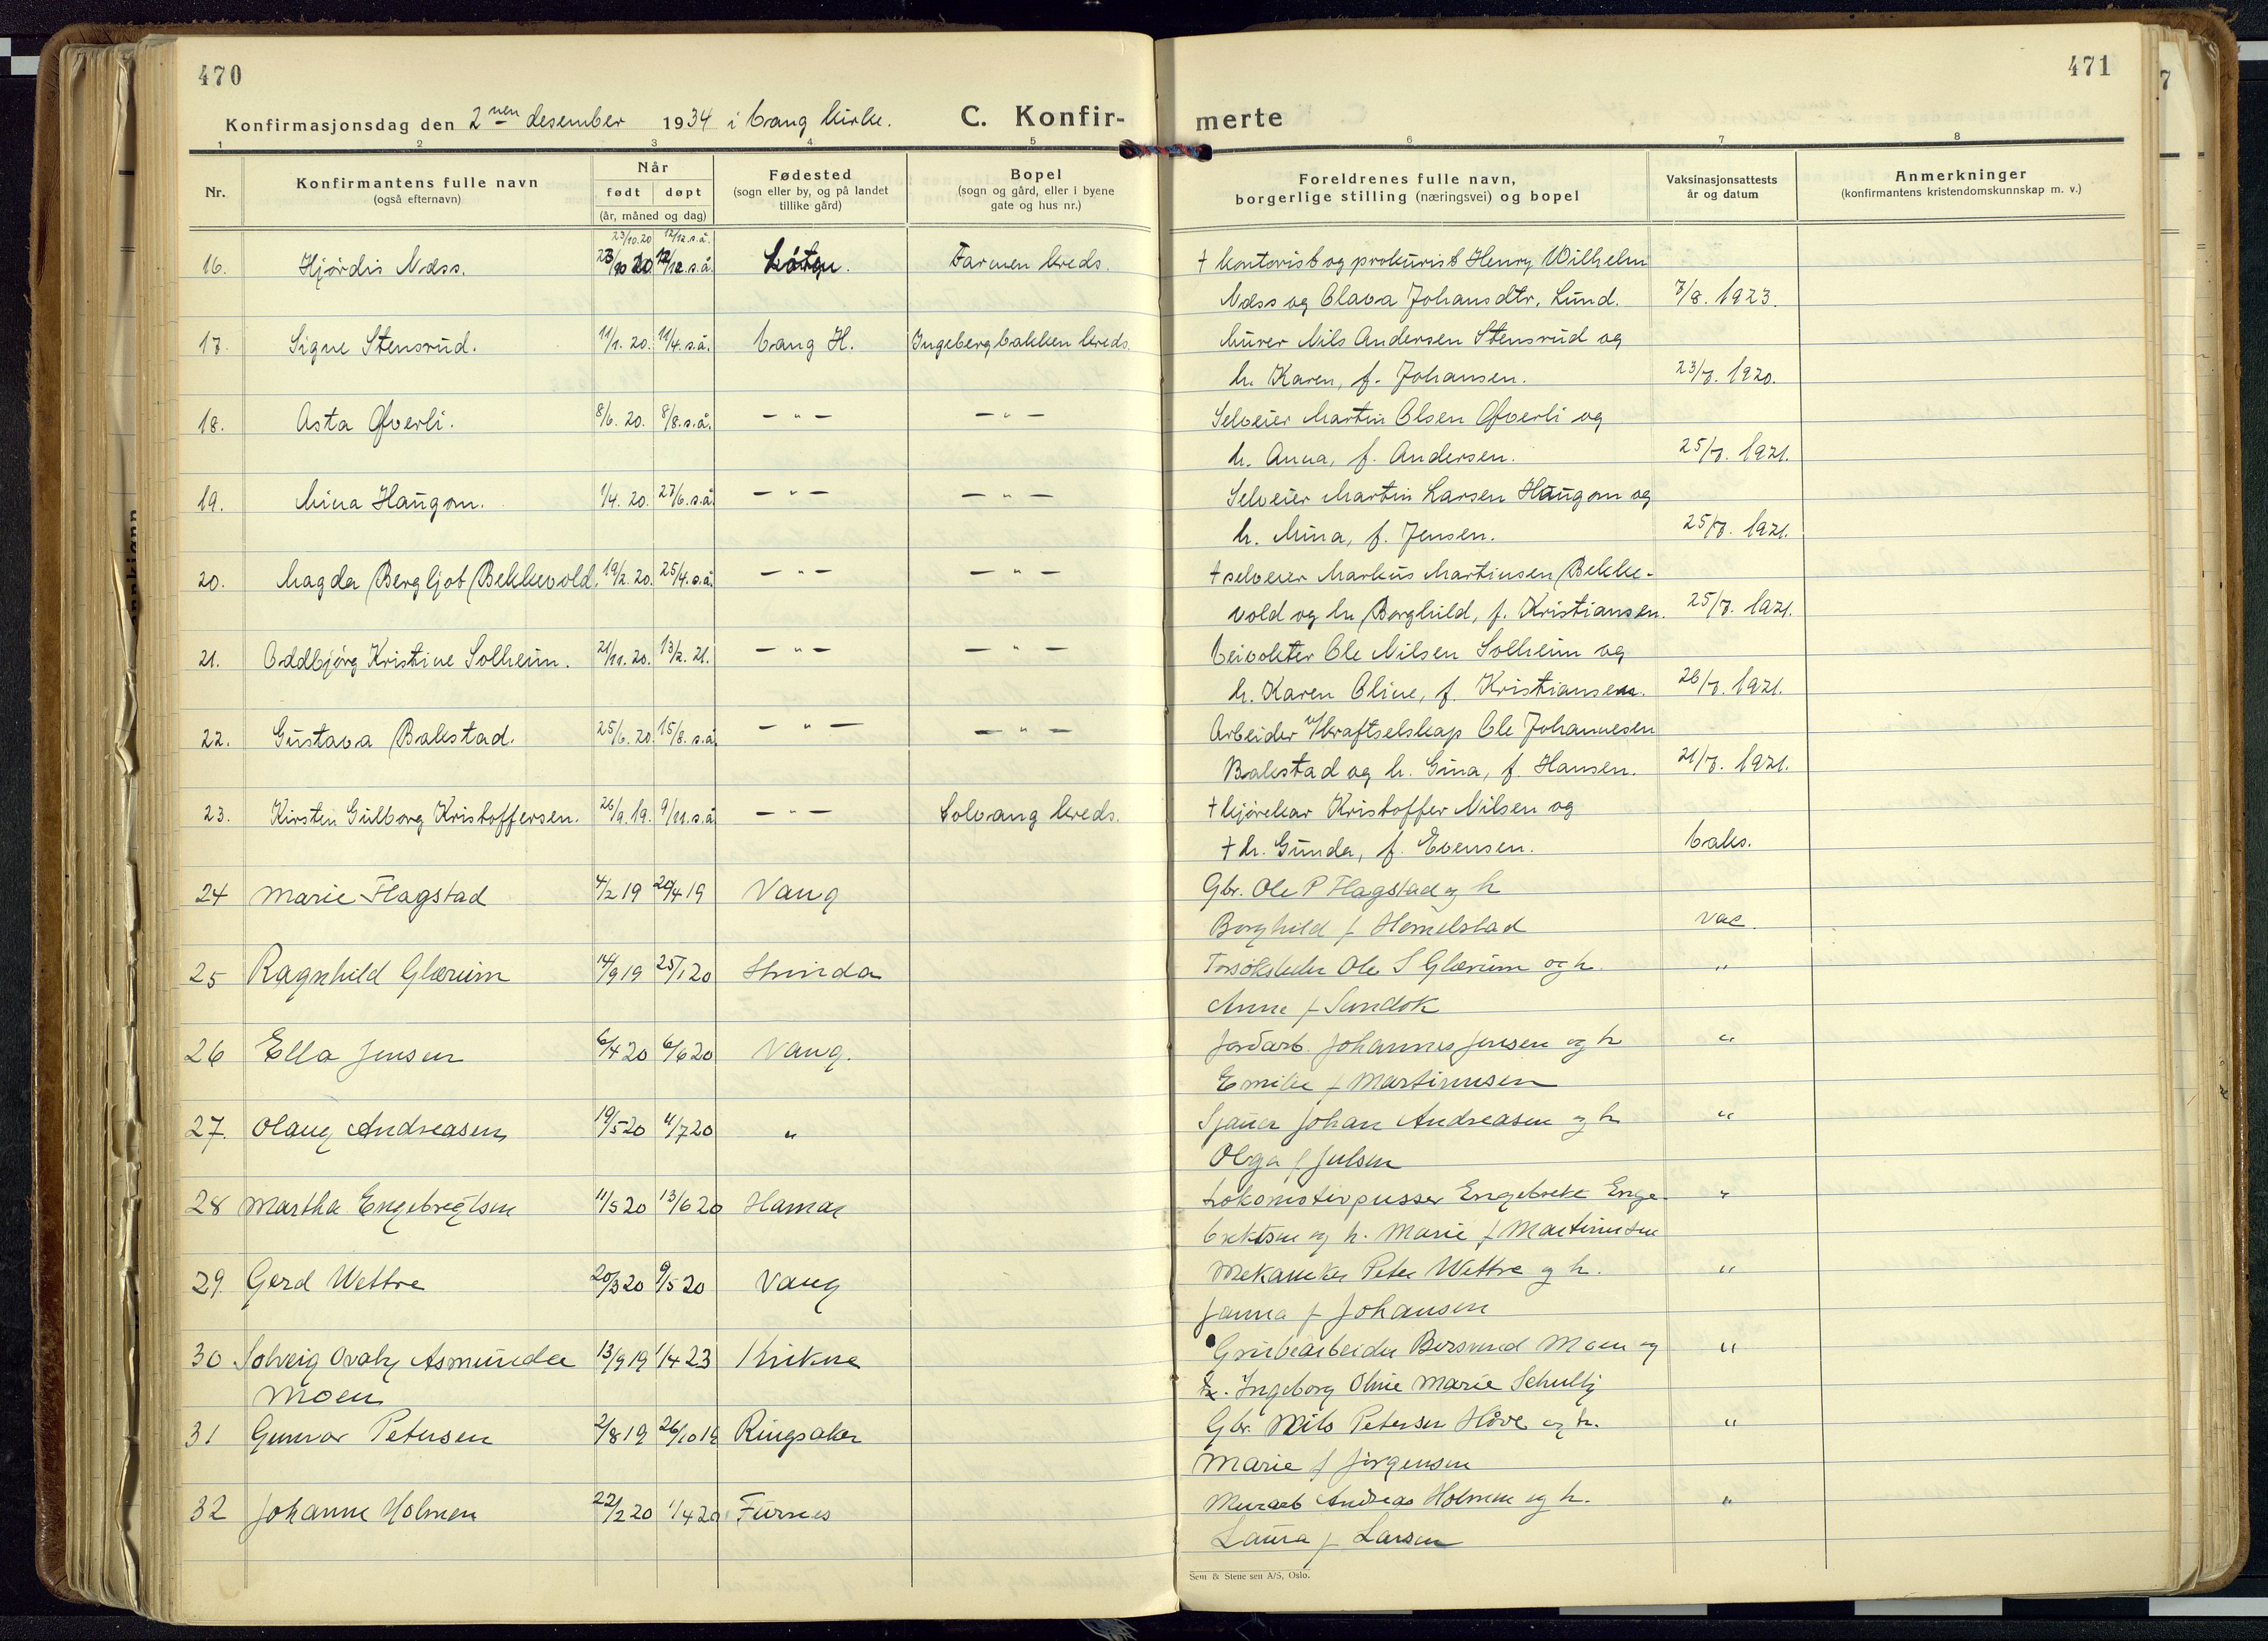 470
Konfirmasjonsdag den 2nen desember 1934 i Vang kirke.
C. Konfir-
1 2 3 4 5
Nr.
Konfirmantens fulle navn
(også efternavn)
Når
født døpt
(år, måned og dag)
Fødested
(sogn eller by, og på landet
tillike gård)
Bopel
(sogn og gård, eller i byene
gate og hus nr.)
23/10.20 12/12.s.å.
16. Hjørdis Næss. 23/10 20 12/12.s.å. Løten. Farmen kreds.
17. Signe Stensrud. 11/1. 20. 11/4. s.å. Vang H. Ingebergbakken kreds.
18. Asta Øfverli. 8/6. 20. 8/8. s.å. — " — — " —
19. Mina Haugom. 1/4. 20. 27/6. s.å. — " — — " —
20. Magda Bergljot Bekkevold. 19/2. 20. 25/4. s.å. — " — — " —
21. Oddbjørg Kristine Solheim. 21/11. 20. 13/2. 21. — " — — " —
22. Gustava Bakstad. 25/6. 20. 15/8. s.å. — " — — " —
23. Kirsten Gulborg Kristoffersen. 26/9. 19. 9/11. s.å. — " — Solvang kreds.
24 Marie Flagstad 4/2 19 20/4 19 Vang
25 Ragnhild Glærum 14/9 19 25/1 20 Strinda
26 Ella Jensen 6/4 20 6/6 20 Vang.
27. Olaug Andreasen 19/5 20 4/7 20 "
28 Martha Engebregtsen 11/5 20 13/6 20 Hamar
29 Gerd Wettre 20/3 20 9/5 20 Vang
30 Solveig Asmunda 13/9 19 1/4 23 Kvikne
Moen
31 Gunvor Petersen 2/8 19 26/10 19 Ringsaker
32 Johanne Holmen 22/2 20 1/4 20 Furnes
471
merte
6 7 8
Foreldrenes fulle navn,
borgerlige stilling (næringsvei) og bopel
Vaksinasjonsattests
år og datum
Anmerkninger
(konfirmantens kristendomskunnskap m. v.)
† kontorist og prokurist Henry Wilhelm
Næss og Olava Johansdtr. Lund. 7/8. 1923.
Murer Nils Andersen Stensrud og
h. Karen, f. Johansen. 23/7. 1920.
Selveier Martin Olsen Øfverli og
h. Anna, f. Andersen. 25/7. 1921.
Selveier Martin Larsen Haugom og
h. Mina, f. Jensen. 25/7. 1921.
† selveier Markus Martinsen Bekke-
vold og h. Borghild, f. Kristiansen. 25/7. 1921.
Veivokter Ole Nilsen Solheim og
h. Karen Oline, f. Kristiansen. 26/7. 1921.
Arbeider v/kraftselskap Ole Johannesen
Bakstad og h. Gina, f. Hansen. 21/7. 1921.
† kjørekar Kristoffer Nilsen og
† h. Gunda, f. Evensen. Vaks.
Gbr. Ole P Flagstad og h
Borghild f Hemelstad vac.
Forsøksleder Ole S Glærum og h. "
Anne f Sundok
Jordarb. Johannes Jensen og h "
Emilie f Martinusen
Sjauer Johan Andreasen og h "
Olga f Julsen
Lokomotivpusser Engebrekt Enge- "
brektsen og h. Marie f Martinsen
Mekaniker Peter Wettre og h. "
Janna f Johansen
Grubearbeider Bersvend Moen og "
h. Ingeborg Oline Marie
Gbr. Nils Petersen Hove og h. "
Marie f Jørgensen
Murarb Andreas Holmen og h. "
Laura f Larsen
Sem & Stenersen A/S, Oslo.